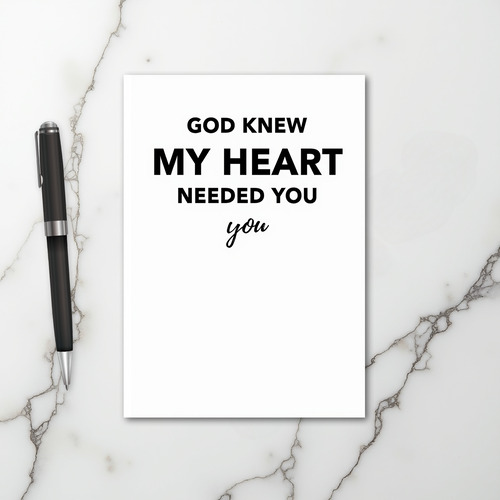 GOD KNEW
MY HEART
NEEDED YOU
you